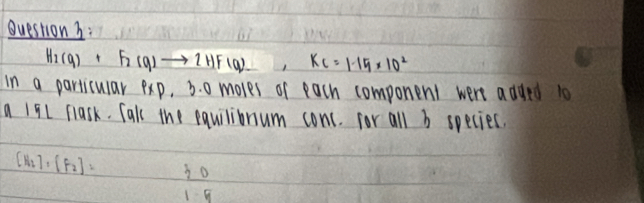 Question 3:
H₂(g) + F₂(g) → 2HF(g), Kc = 1.15 × 10²
in a particular exp, 3.0 moles of each component were added to
a 1.5L flask. Calc the equilibrium conc. for all 3 species.
[H₂] = [F₂] = 3.0
1.5